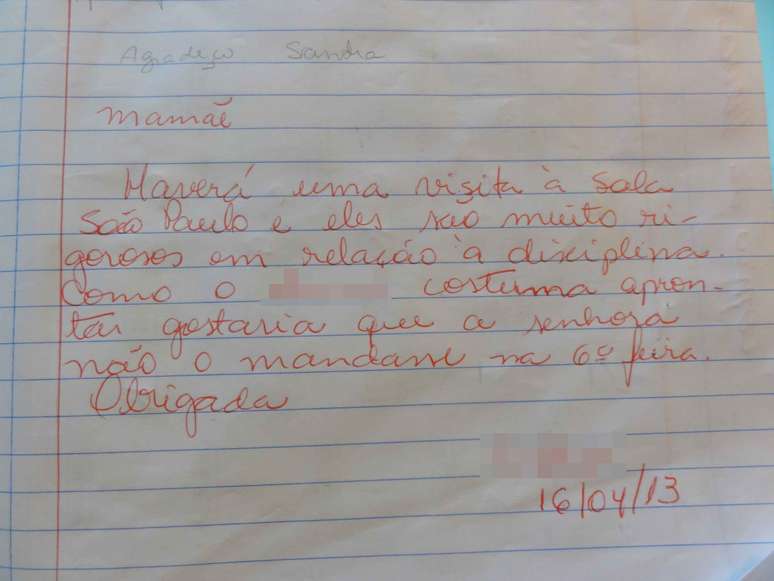 Agradeço Sandra
Mamãe
Haverá uma visita à Sala
São Paulo e eles são muito ri-
gorosos em relação à disciplina.
Como o costuma apron-
tar gostaria que a senhora
não o mandasse na 6ª feira.
Obrigada
16/04/13